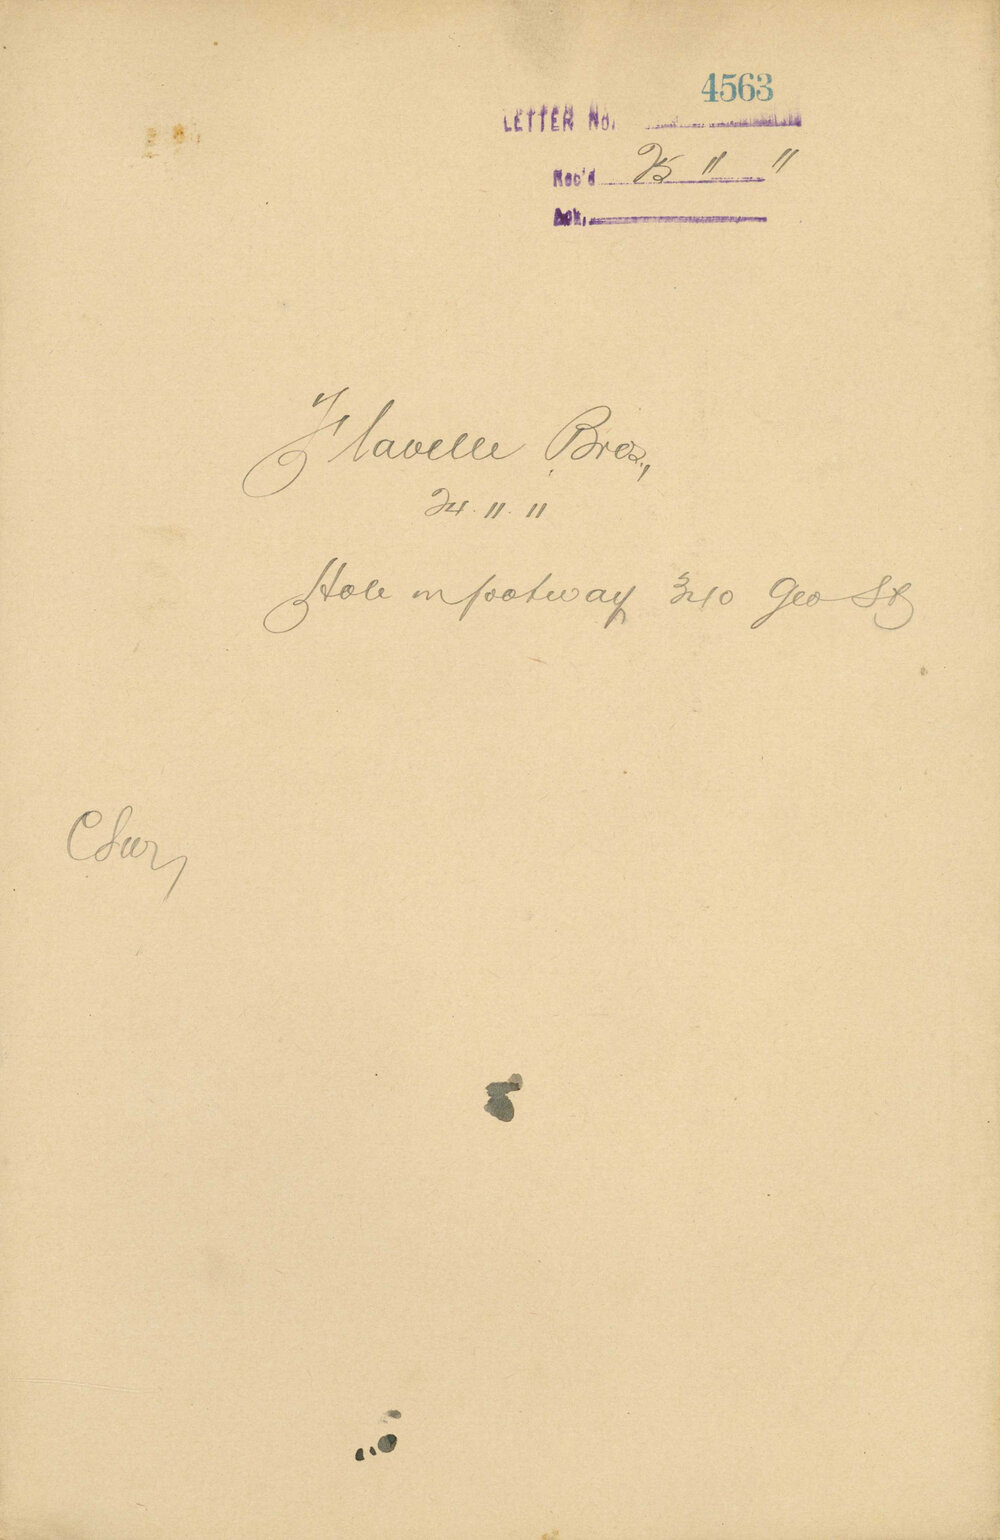 4563
LETTER No.
Rec'd 25 11 11
Ack.
Flavelle Bros.,
24. 11. 11
Hole in footway 340 Geo St
C Sur,